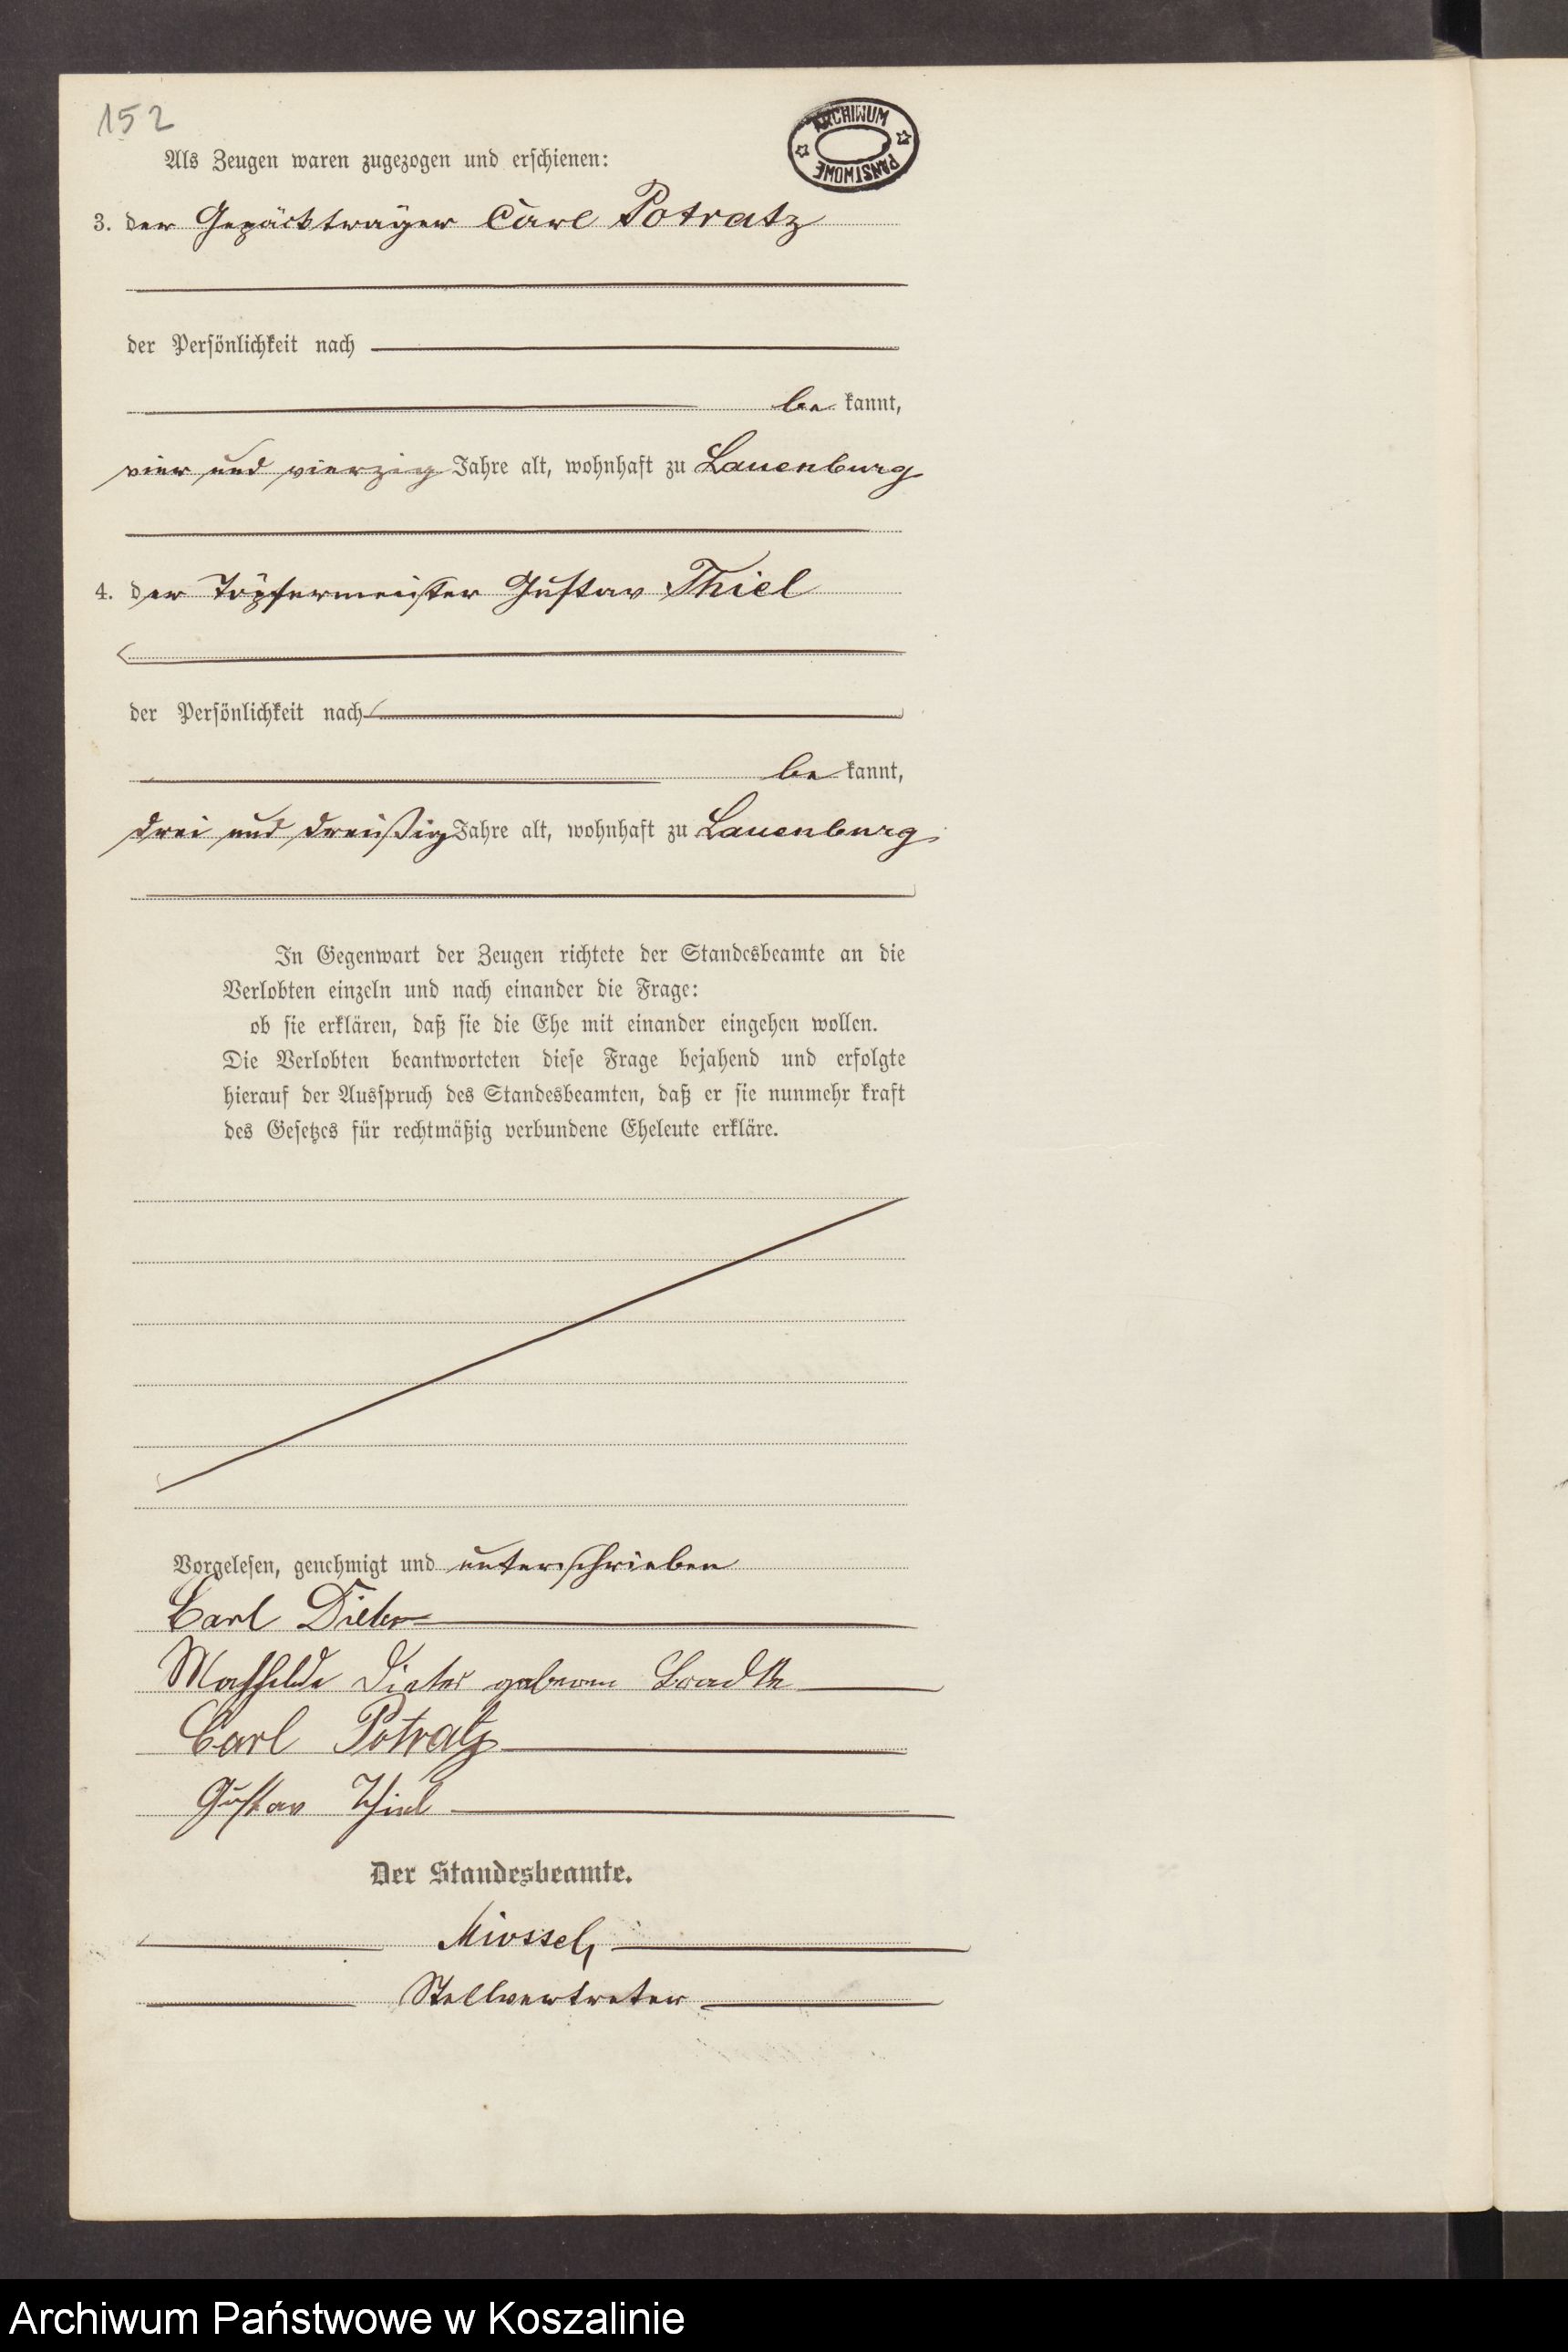 152
ARCHIWUM PAŃSTWOWE
Als Zeugen waren zugezogen und erschienen:
3. der Gepäckträger Carl Potratz
der Persönlichkeit nach
be kannt,
vier und vierzig Jahre alt, wohnhaft zu Lauenburg
4. der Töpfermeister Gustav Thiel
der Persönlichkeit nach
be kannt,
drei und dreißig Jahre alt, wohnhaft zu Lauenburg
In Gegenwart der Zeugen richtete der Standesbeamte an die
Verlobten einzeln und nach einander die Frage:
ob sie erklären, daß sie die Ehe mit einander eingehen wollen.
Die Verlobten beantworteten diese Frage bejahend und erfolgte
hierauf der Ausspruch des Standesbeamten, daß er sie nunmehr kraft
des Gesetzes für rechtmäßig verbundene Eheleute erkläre.
Vorgelesen, genehmigt und unterschrieben
Carl Dieter
Mathilde Dieter geboren
Carl Potratz
Gustav Thiel
Der Standesbeamte.
Stellvertreter
Archiwum Państwowe w Koszalinie